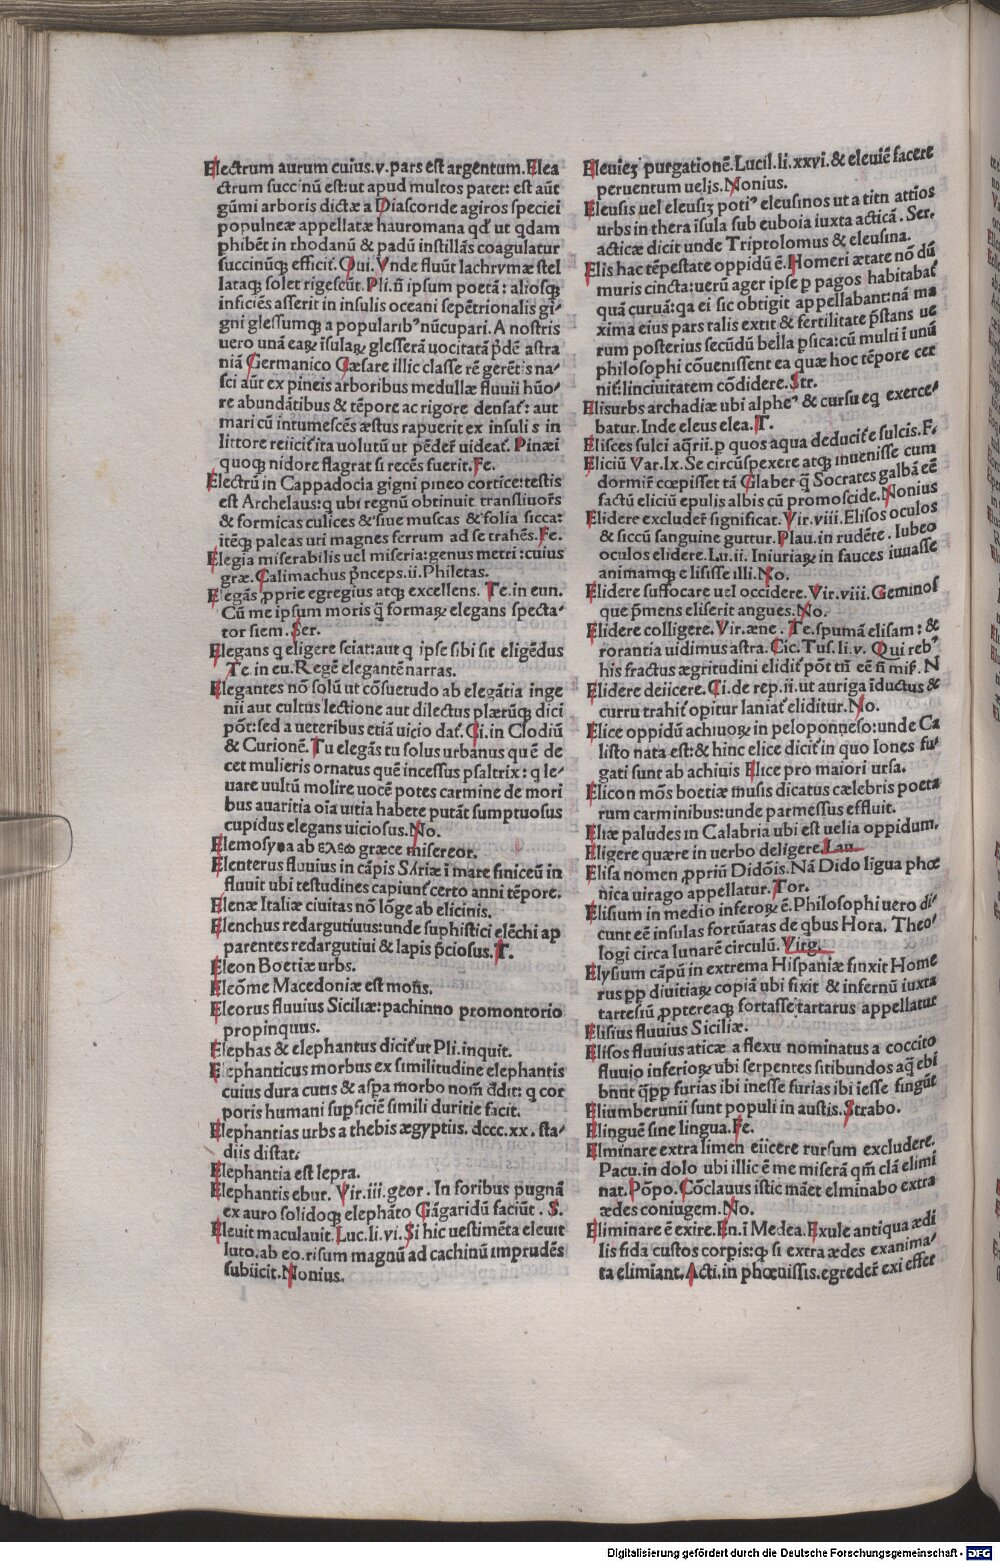 Electrum aurum cuius.v.pars est argentum.Elea
ctrum succinū est:ut apud multos patet: est aūt
gūmi arboris dictæ a Diascoride agiros speciei
populneæ appellatæ hauromana qđ ut qdam
phibēt in rhodanū & padū instillās coagulatur
succinūqȝ efficit.Qui.Vnde fluūt lachrymæ stel
lataqȝ solet rigescūt.Pli.ñ ipsum poetā: aliosqȝ
inficiēs asserit in insulis oceani sepētrionalis gi-
gni glessumqȝ a popularibꝰ nūcupari.A nostris
uero unā eaꝝ īsulaꝝ glesserā uocitatā p̄dē astra
niā Germanico Cæsare illic classe rē gerētis na-
sci aūt ex pineis arboribus medullæ fluuii hūo-
re abundātibus & tēpore ac rigore densat̄: aut
mari cū intumescēs æstus rapuerit ex insulis in
littore reiicit̄ ita uolutū ut pēder̄ uideat̄. Pinæi
quoqȝ nidore flagrat si recēs fuerit.Fe.
Electrū in Cappadocia gigni pineo cortice:testis
est Archelaus:q ubi regnū obtinuit transliuor̄s
& formicas culices & siue muscas & folia sicca:
itēqȝ paleas uti magnes ferrum ad se trahēs.Fe.
Elegia miserabilis uel miseria:genus metri:cuius
græ.Calimachus p̄nceps.ii.Philetas.
Elegās ꝓprie egregius atqȝ excellens. Te.in eun.
Cū me ipsum moris q̄ formaꝝ elegans specta-
tor siem.Ser.
Elegans q eligere sciat:aut q ipse sibi sit eligēdus
Te.in eu.Regē elegantē narras.
Elegantes nō solū ut cōsuetudo ab elegātia inge
nii aut cultus lectione aut dilectus plærūqȝ dici
pōt:sed a ueteribus etiā uicio dat̄.Ci.in Clodiū
& Curionē.Tu elegās tu solus urbanus quē de
cet mulieris ornatus quē incessus psaltrix: q le-
uare uultū molire uocē potes carmine de mori
bus auaritia oīa uitia habere putāt sumptuosus
cupidus elegans uiciosus.No.
Elemosyna ab ελεω græce misereor.
Elenterus fluuius in cāpis Siriæ ī mare finiceū in
fluuit ubi testudines capiunt̄ certo anni tēpore.
Elenæ Italiæ ciuitas nō lōge ab elicinis.
Elenchus redargutiuus:unde suphistici elēchi ap
parentes redargutiui & lapis p̄ciosus.T.
Eleon Boetiæ urbs.
Eleōme Macedoniæ est mons.
Eleorus fluuius Siciliæ:pachinno promontorio
propinquus.
Elephas & elephantus dicit̄ ut Pli.inquit.
Elephanticus morbus ex similitudine elephantis
cuius dura cutis & aspa morbo nom̄ ddit: q cor
poris humani supficiē simili duritie facit.
Elephantias urbs a thebis ægyptiis. dccc.xx. sta-
diis distat.
Elephantia est lepra.
Elephantis ebur. Vir.iii.geor. In foribus pugnā
ex auro solidoqȝ elephāto Gāgaridū faciūt . S.
Eleuit maculauit.Luc.li.vi.Si hic uestimēta eleuit
luto.ab eo.risum magnū ad cachinū imprudēs
subiicit.Nonius.
Eleuieȝ purgationē.Lucil.li.xxvi.& eleuiē facere
peruentum uelis.Nonius.
Eleusis uel eleusiȝ potiꝰ eleusinos ut a titn attios
urbs in thera īsula sub euboia iuxta acticā . Ser.
acticæ dicit unde Triptolomus & eleusina.
Elis hac tēpestate oppidū ē.Homeri ætate nō dū
muris cincta:uerū ager ipse p pagos habitabat̄
quā curuā:qa ei sic obtigit appellabant:nā ma
xima eius pars talis extit & fertilitate p̄stans ue
rum posterius secūdū bella psica:cū multi ī unū
philosophi cōuenissent ea quæ hoc tēpore cer
nit̄:linciuitatem cōdidere.Str.
Elisurbs archadiæ ubi alpheꝰ & cursu eq exerce-
batur.Inde eleus elea.T.
Elisces sulci aq̄rii.p quos aqua deducit̄ e sulcis.F.
Eliciū Var.Ix.Se circūspexere atqȝ inuenisse cum
dormir̄ cœpisset tā Glaber q̄ Socrates galbā eē
factū eliciū epulis albis cū promoscide.Nonius
Elidere excluder̄ significat.Vir.viii.Elisos oculos
& siccū sanguine guttur.Plau.in rudēte. Iubeo
oculos elidere.Lu.ii. Iniuriaꝝ in fauces iuuasse
animamqȝ elisisse illi.No.
Elidere suffocare uel occidere.Vir.viii.Geminos
que p̄mens eliserit angues.No.
Elidere colligere.Vir.æne . Te.spumā elisam: &
rorantia uidimus astra.Cic.Tus.li.v. Qui rebꝰ
his fractus ægritudini elidit̄ pōt tn̄ eē ñ miꝑ. N
Elidere deiicere.Ci.de rep.ii.ut auriga īductus &
curru trahit̄ opitur laniat̄ eliditur.No.
Elice oppidū achiuoꝝ in peloponneso:unde Ca
listo nata est:& hinc elice dicit̄ in quo Iones fu-
gati sunt ab achiuis Elice pro maiori ursa.
Elicon mōs boetiæ musis dicatus cælebris poeta
rum carminibus:unde parmessus effluit.
Eliæ paludes in Calabria ubi est uelia oppidum.
Eligere quære in uerbo deligere.Lau.
Elisa nomen ꝓpriū Didōis.Nā Dido ligua phœ
nica uirago appellatur.Tor.
Elisium in medio inferoꝝ ē.Philosophi uero di-
cunt eē insulas fortūatas de qbus Hora. Theo-
logi circa lunarē circulū.Virg.
Elysium cāpū in extrema Hispaniæ finxit Home
rus pp diuitiaꝝ copiā ubi fixit & infernū iuxta
tartesiū ꝓptereaqȝ fortasse tartarus appellatur
Elisius fluuius Siciliæ.
Elisos fluuius aticæ a flexu nominatus a coccito
fluuio inferioꝝ ubi serpentes sitibundos aq̄ ebi
bnūt q̄pp furias ibi inesse furias ibi īesse fingūt
Eliumberunii sunt populi in austis.Strabo.
Elinguē sine lingua.Fe.
Elminare extra limen eiicere rursum excludere.
Pacu.in dolo ubi illic ē me miserā qm̄ clā elimi
nat.Pōpo. Cōclauus istic māet elminabo extra
ædes coniugem.No.
Eliminare ē exire.En.ī Medea.Exule antiqua ædi
lis fida custos corpis:qȝ si extra ædes exanima-
ta elimiant.Acti.in phœnissis.egreder̄ exi effer
Digitalisierung gefördert durch die Deutsche Forschungsgemeinschaft - DFG